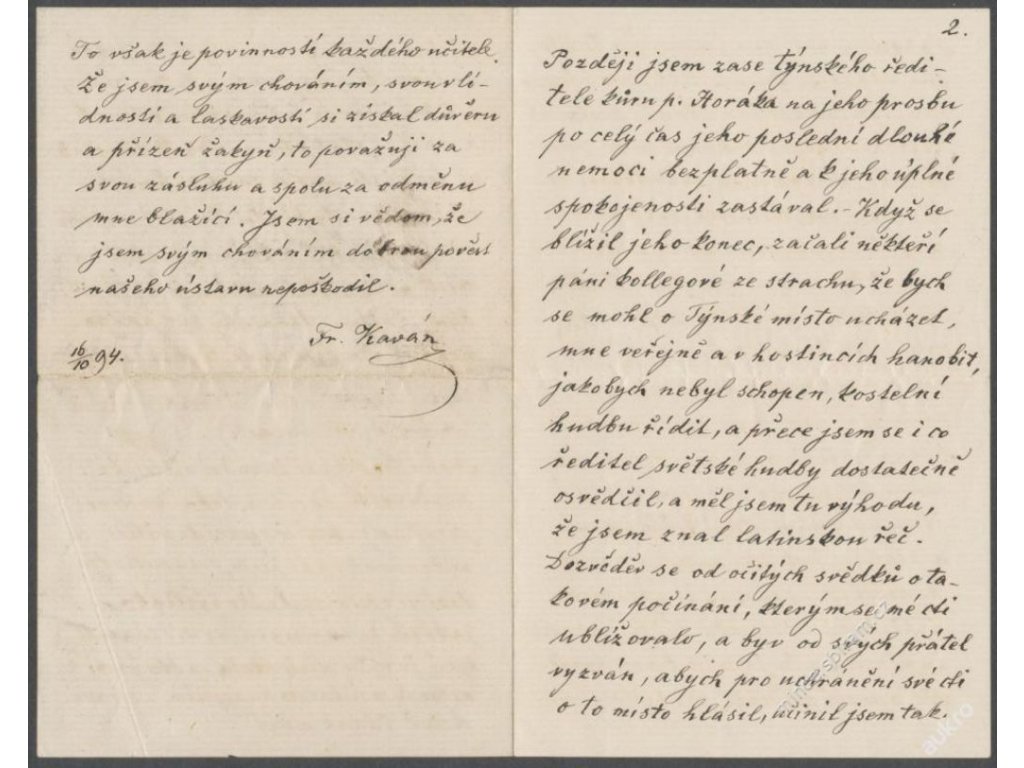 To však je povinností každého učitele.
Že jsem svým chováním, svou vlí-
dností a laskavostí si získal důvěru
a přízeň žákyň, to považuji za
svou zásluhu a spolu za odměnu
mne blažící. Jsem si vědom, že
jsem svým chováním dobrou pověst
našeho ústavu nepoškodil.
Fr. Kaván
16/10 94.
2.
Později jsem zase týnského ředi-
tele kůru p. Horáka na jeho prosbu
po celý čas jeho poslední dlouhé
nemoci bezplatně a k jeho úplné
spokojenosti zastával. - Když se
blížil jeho konec, začali někteří
páni kollegové ze strachu, že bych
se mohl o Týnské místo ucházet,
mne veřejně a v hostincích hanobit,
jakobych nebyl schopen, kostelní
hudbu řídit, a přece jsem se i co
ředitel světské hudby dostatečně
osvědčil, a měl jsem tu výhodu,
že jsem znal latinskou řeč.
Dozvěděv se od očitých svědků o ta-
kovém počínání, kterým se mé cti
ubližovalo, a byv od svých přátel
vyzván, abych pro uchránění své cti
o to místo hlásil, učinil jsem tak.
aukro